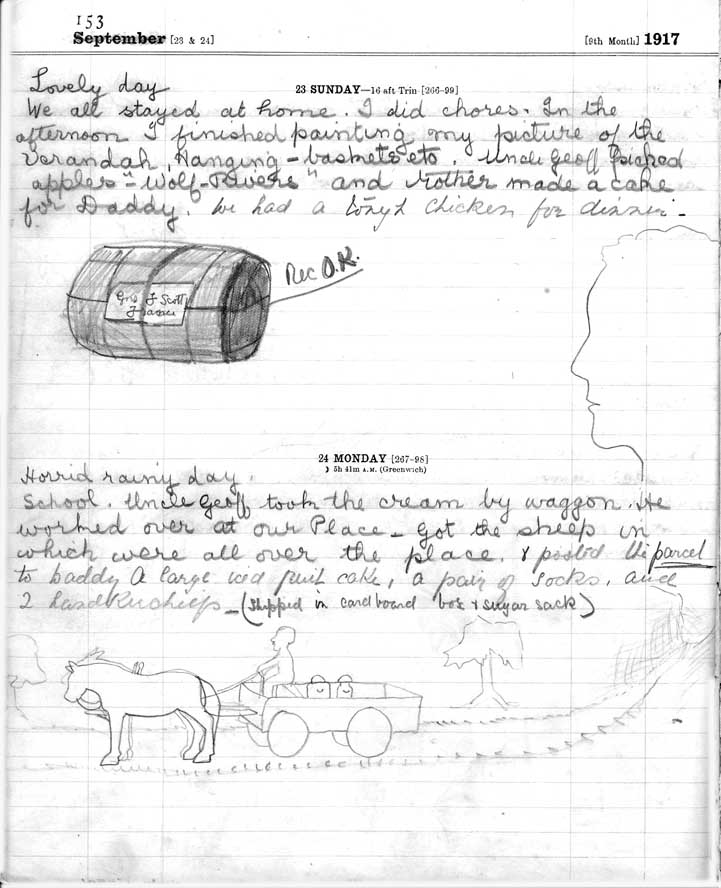 153
September [23 & 24]
[9th Month] 1917
23 SUNDAY—16 aft Trin [266-99]
Lovely day
We all stayed at home. I did chores. In the
afternoon I finished painting my picture of the
Verandah, Hanging-baskets etc. Uncle Geoff picked
apples "Wolf-Rivers" and Mother made a cake
for Daddy. We had a chicken for dinner-
Rec O.K.
Gnr J Scott
France
24 MONDAY [267-98]
☽ 5h 41m A.M. (Greenwich)
Horrid rainy day.
School. Uncle Geoff took the cream by waggon. He
worked over at our Place - Got the sheep in
which were all over the place. & posted the parcel
to Daddy A large iced fruit cake, a pair of socks, and
2 handkerchiefs - (Shipped in cardboard box & sugar sack)